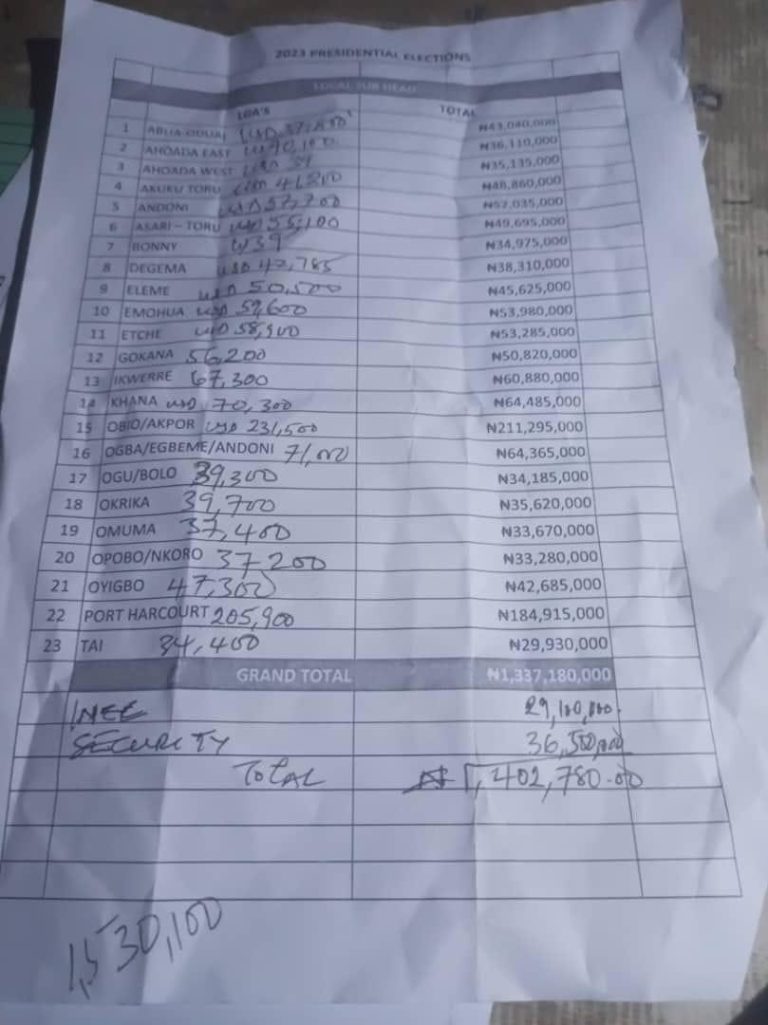 2023 PRESIDENTIAL ELECTIONS
LGA'S TOTAL
1 ABUA-ODUAL USD ₦43,040,000
2 AHOADA EAST USD 40,100 ₦36,110,000
3 AHOADA WEST USD 39 ₦35,135,000
4 AKUKU TORU USD ₦46,860,000
5 ANDONI USD 57,700 ₦52,035,000
6 ASARI-TORU USD 55,100 ₦49,695,000
7 BONNY 39 ₦34,975,000
8 DEGEMA USD 42,785 ₦38,310,000
9 ELEME USD 50,500 ₦45,625,000
10 EMOHUA USD 59,600 ₦53,980,000
11 ETCHE USD 58,900 ₦53,285,000
12 GOKANA 56,200 ₦50,820,000
13 IKWERRE 67,300 ₦60,880,000
14 KHANA USD 70,300 ₦64,485,000
15 OBIO/AKPOR USD 231,500 ₦211,295,000
16 OGBA/EGBEME/ANDONI ₦64,365,000
17 OGU/BOLO 39,300 ₦34,185,000
18 OKRIKA 39,700 ₦35,620,000
19 OMUMA 37,400 ₦33,670,000
20 OPOBO/NKORO 37,200 ₦33,280,000
21 OYIGBO 47,300 ₦42,685,000
22 PORT HARCOURT 205,900 ₦184,915,000
23 TAI 34,400 ₦29,930,000
GRAND TOTAL ₦1,337,180,000
INEC 29,100,000
SECURITY 36,500,000
TOTAL ₦ 1,402,780.00
1,530,100